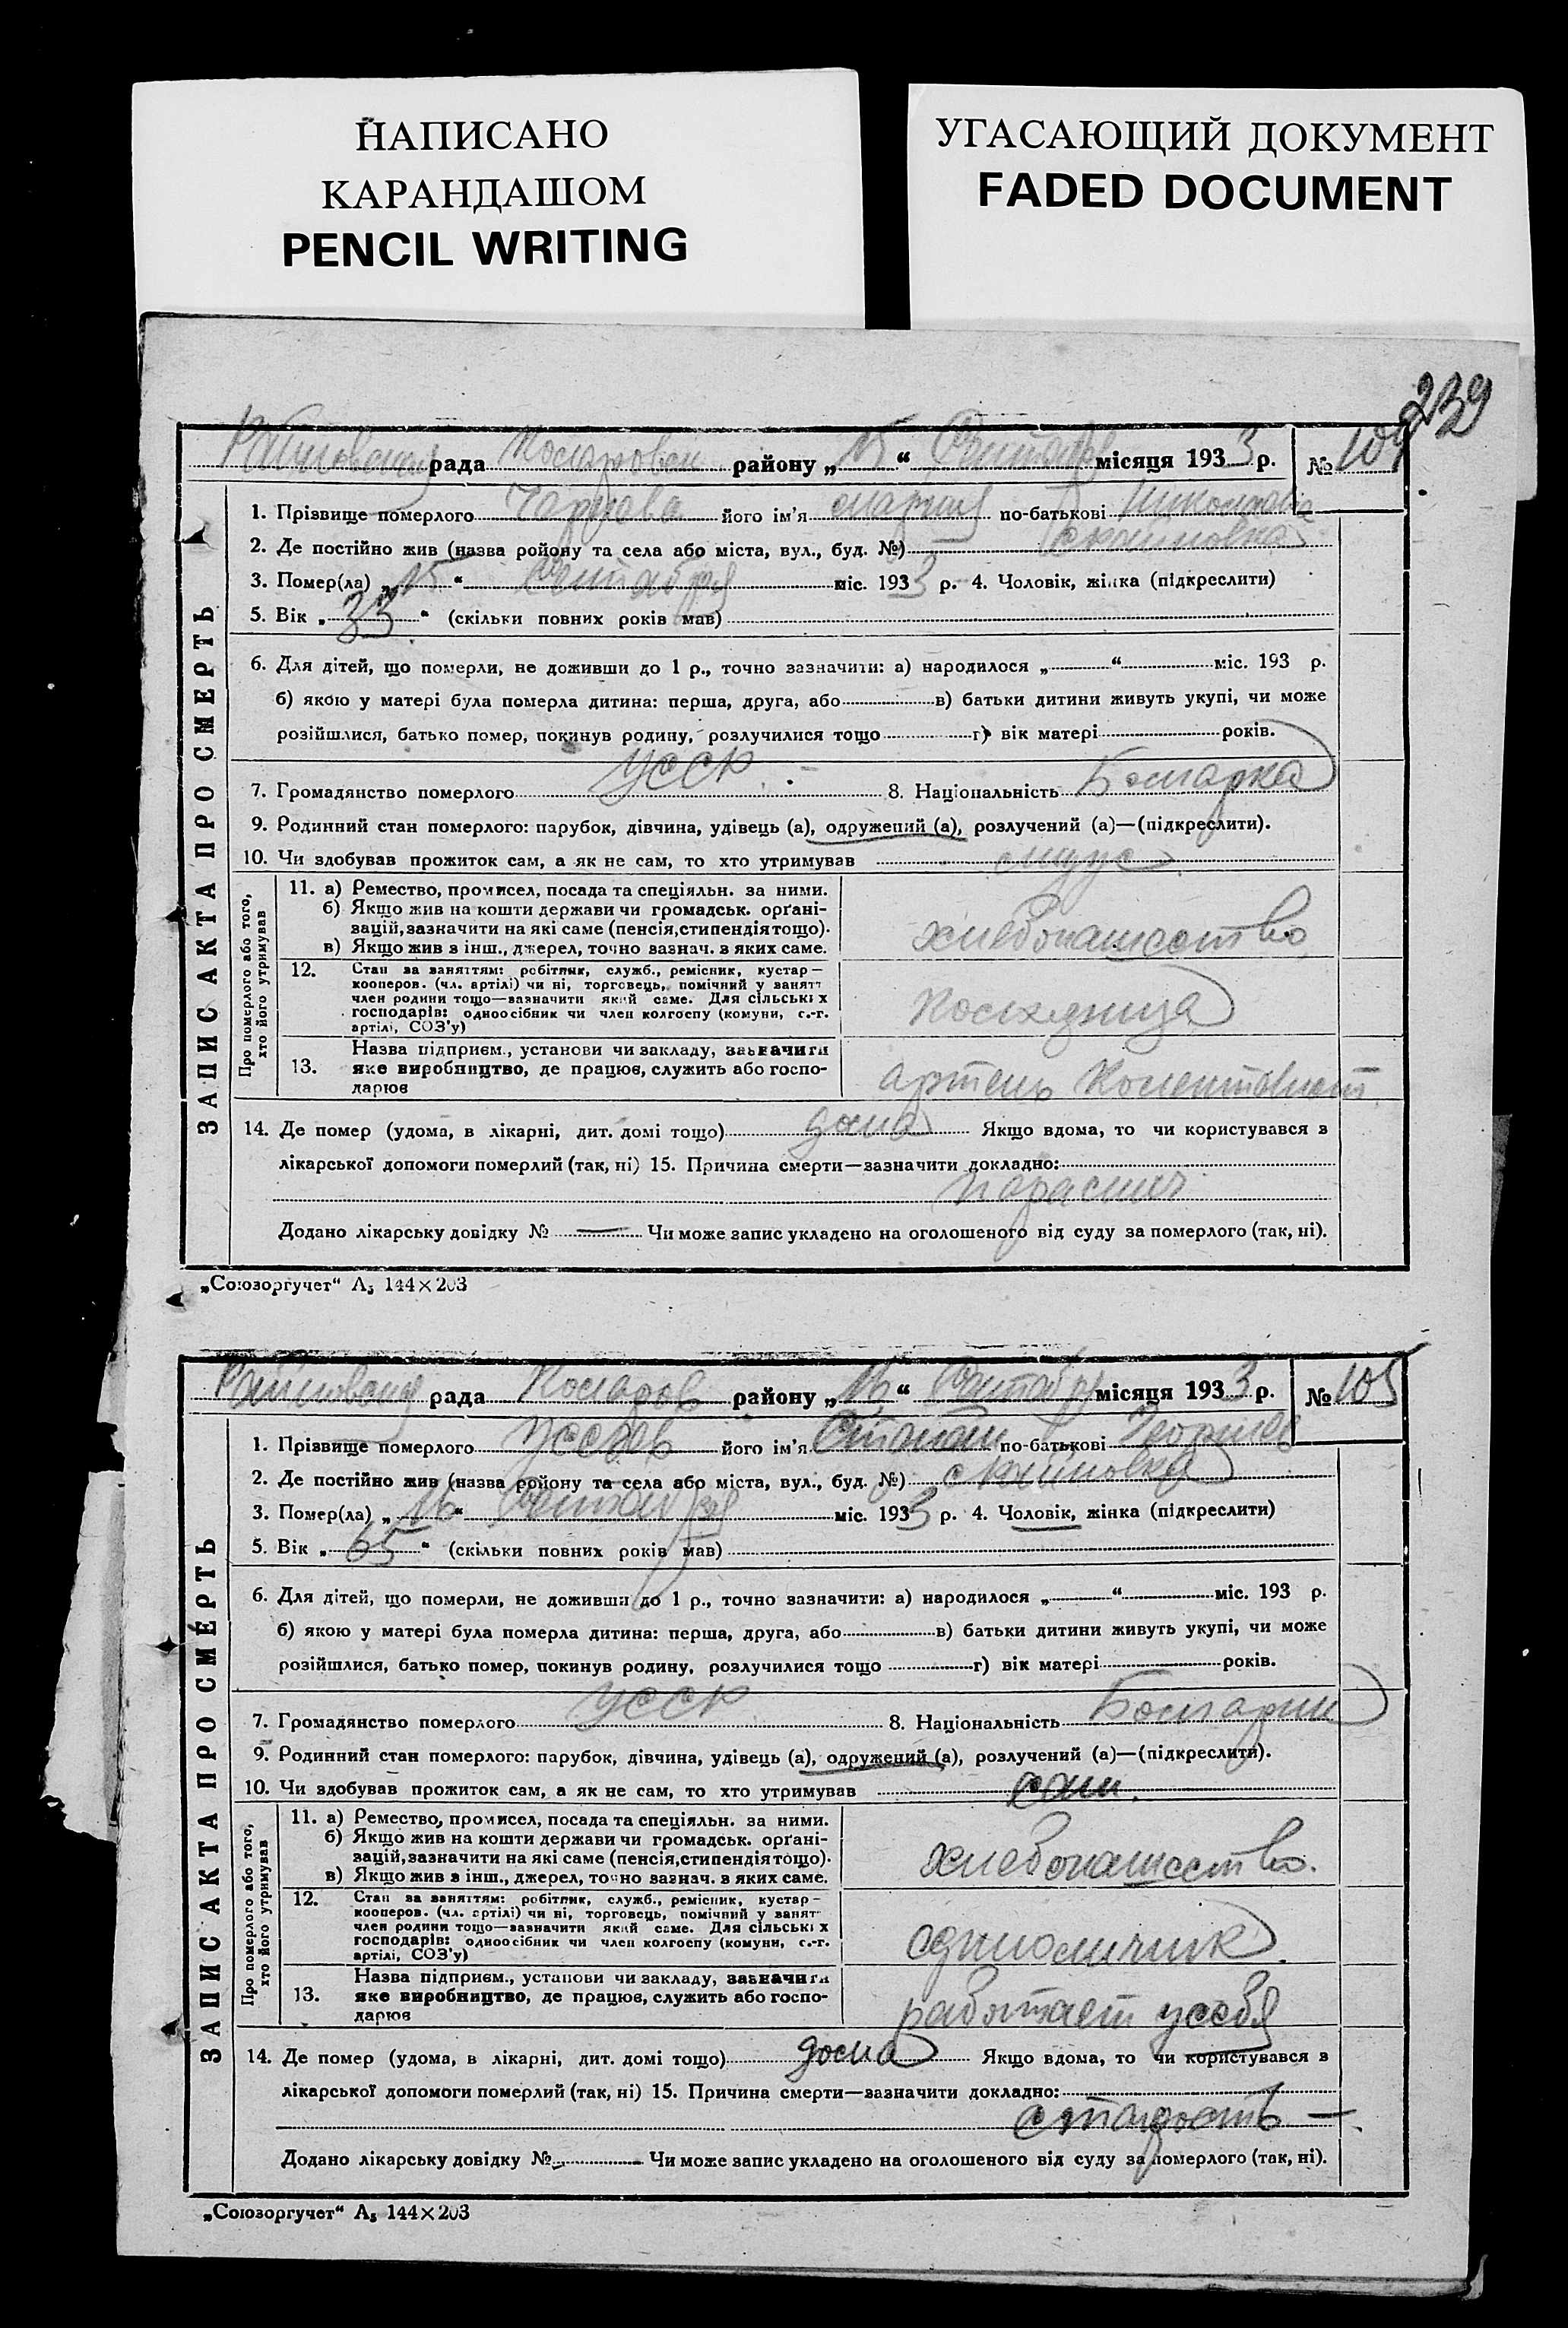 НАПИСАНО
КАРАНДАШОМ
PENCIL WRITING
УГАСАЮЩИЙ ДОКУМЕНТ
FADED DOCUMENT
239
рада района „ 15 “ місяця 1933 р. № 104
ЗАПИС АКТА ПРО СМЕРТЬ
1. Прізвище померлого його ім'я Мария по-батькові
2. Де постійно жив (назва ройону та села або міста, вул., буд. №)
3. Помер(ла) „ 15 “ Сентября міс. 1933 р. 4. Чоловік, жінка (підкреслити)
5. Вік „ 33 “ (скільки повних років мав)
6. Для дітей, що померли, не доживши до 1 р., точно зазначити: а) народилося „ “ міс. 193 р.
б) якою у матері була померла дитина: перша, друга, або в) батьки дитини живуть укупі, чи може
розійшлися, батько помер, покинув родину, розлучилися тощо г) вік матері років.
7. Громадянство померлого УССР 8. Національність Болгарка
9. Родинний стан померлого: парубок, дівчина, удівець (а), одружений (а), розлучений (а)—(підкреслити).
10. Чи здобував прожиток сам, а як не сам, то хто утримував муж
Про померлого або того, хто його утримував
11. а) Ремество, промисел, посада та спеціяльн. за ними.
б) Якщо жив на кошти держави чи громадськ. орґані-
зацій, зазначити на які саме (пенсія, стипендія тощо).
в) Якщо жив з інш., джерел, точно зазнач. з яких саме.
хлебопашество
12. Стан за заняттям: робітник, служб., ремісник, кустар—
кооперов. (чл. артілі) чи ні, торговець, помічний у занятт
член родини тощо—зазначити який саме. Для сільських
господарів: одноосібник чи член колгоспу (комуни, с.-г.
артілі, СОЗ'у)
13. Назва підприєм., установи чи закладу, зазначити
яке виробництво, де працює, служить або госпо-
дарює
артель
14. Де помер (удома, в лікарні, дит. домі тощо) дома Якщо вдома, то чи користувався з
лікарської допомоги померлий (так, ні) 15. Причина смерти—зазначити докладно:
Додано лікарську довідку № — Чи може запис укладено на оголошеного від суду за померлого (так, ні).
„Союзоргучет“ А₅ 144×203
рада району „ 16 “ місяця 1933 р. № 105
ЗАПИС АКТА ПРО СМЕРТЬ
1. Прізвище померлого його ім'я Степан по-батькові
2. Де постійно жив (назва ройону та села або міста, вул., буд. №)
3. Помер(ла) „ 16 “ Сентября міс. 1933 р. 4. Чоловік, жінка (підкреслити)
5. Вік „ 65 “ (скільки повних років мав)
6. Для дітей, що померли, не доживши до 1 р., точно зазначити: а) народилося „ “ міс. 193 р.
б) якою у матері була померла дитина: перша, друга, або в) батьки дитини живуть укупі, чи може
розійшлися, батько помер, покинув родину, розлучилися тощо г) вік матері років.
7. Громадянство померлого УССР 8. Національність Болгарин
9. Родинний стан померлого: парубок, дівчина, удівець (а), одружений (а), розлучений (а)—(підкреслити).
10. Чи здобував прожиток сам, а як не сам, то хто утримував сам.
Про померлого або того, хто його утримував
11. а) Ремество, промисел, посада та спеціяльн. за ними.
б) Якщо жив на кошти держави чи громадськ. орґані-
зацій, зазначити на які саме (пенсія, стипендія тощо).
в) Якщо жив з інш., джерел, точно зазнач. з яких саме.
хлебопашество.
12. Стан за заняттям: робітник, служб., ремісник, кустар—
кооперов. (чл. артілі) чи ні, торговець, помічний у занят
член родини тощо—зазначити який саме. Для сільських
господарів: одноосібник чи член колгоспу (комуни, с.-г.
артілі, СОЗ'у)
13. Назва підприєм., установи чи закладу, зазначити
яке виробництво, де працює, служить або госпо-
дарює
работает у себя
14. Де помер (удома, в лікарні, дит. домі тощо) дома Якщо вдома, то чи користувався з
лікарської допомоги померлий (так, ні) 15. Причина смерти—зазначити докладно:
старость —
Додано лікарську довідку № Чи може запис укладено на оголошеного від суду за померлого (так, ні).
„Союзоргучет“ А₅ 144×203